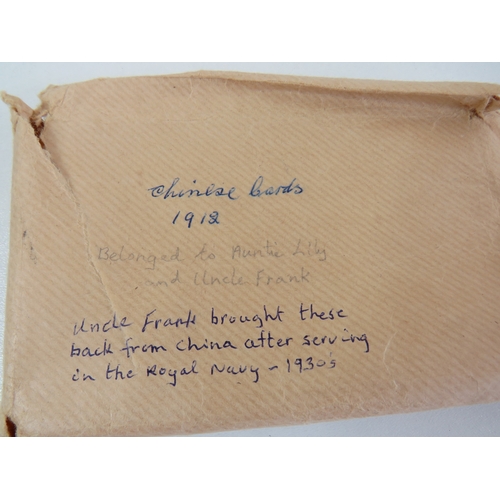 Chinese Cards
1912
Belonged to Auntie Lily
and Uncle Frank
Uncle Frank brought these
back from China after serving
in the Royal Navy - 1930's